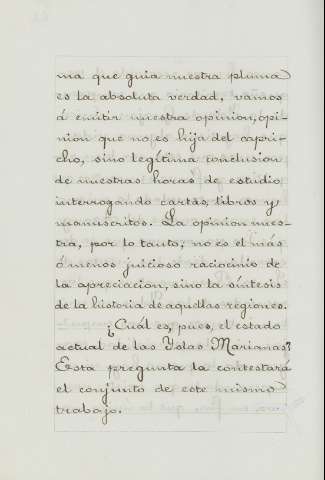 ma que guia nuestra pluma
es la absoluta verdad, vamos
á emitir nuestra opinion, opi-
nion que no es hija del capri-
cho, sino legítima conclusion
de nuestras horas de estudio
interrogando cartas, libros y
manuscritos. La opinion nues-
tra, por lo tanto, no es el más
ó menos juicioso raciocinio de
la apreciacion, sino la síntesis
de la historia de aquellas regiones.
¿Cuál es, pues, el estado
actual de las Yslas Marianas?
Esta pregunta la contestará
el conjunto de este mismo
trabajo.